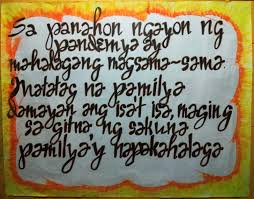 Sa panahon ngayon ng
pandemya ay
mahalagang magsama-sama.
Matatag na pamilya
damayan ang isat isa, maging
sa gitna ng sakuna
pamilya'y napakahalaga